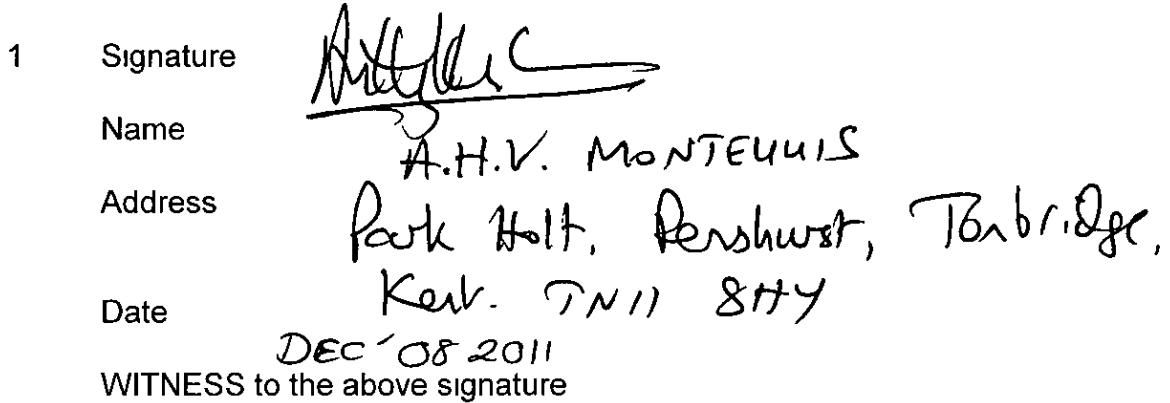 1 Signature
Name A.H.V. MONTEUUIS
Address Park Holt, Penshurst, Tonbridge,
Kent. TN11 8HY
Date
DEC '08 2011
WITNESS to the above signature